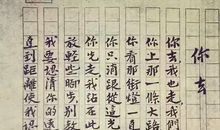 你去
你去我也走我們
你上那一條大路
你看那街燈一直
你只消跟從這光
你先走我站在此
放輕些脚步別教
我要認清你的遠
直到距離使我認